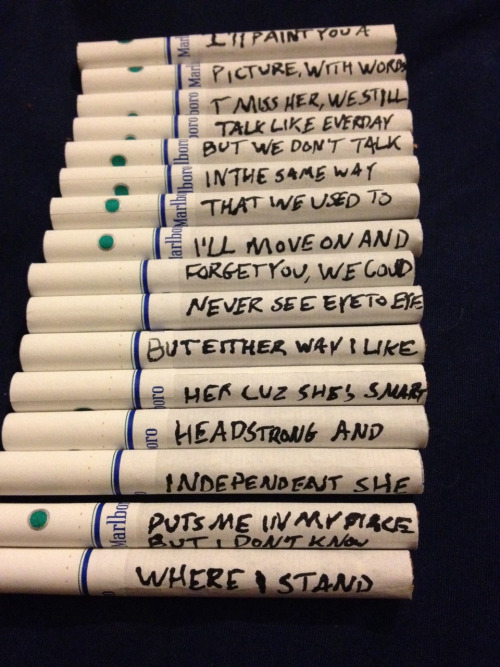 Mar I'll PAINT YOU A
Marl PICTURE, WITH WORDS
boro I MISS HER, WE STILL
oro TALK LIKE EVERDAY
lboro BUT WE DON'T TALK
lboro IN THE SAME WAY
Marlbo THAT WE USED TO
arlbo I'LL MOVE ON AND
FORGET YOU, WE COUD
NEVER SEE EYE TO EYE
BUT EITHER WAY I LIKE
oro HER CUZ SHE'S SMART
oro HEADSTRONG AND
INDEPENDENT SHE
Marlbo PUTS ME IN MY PLACE
BUT I DON'T KNOW
WHERE I STAND